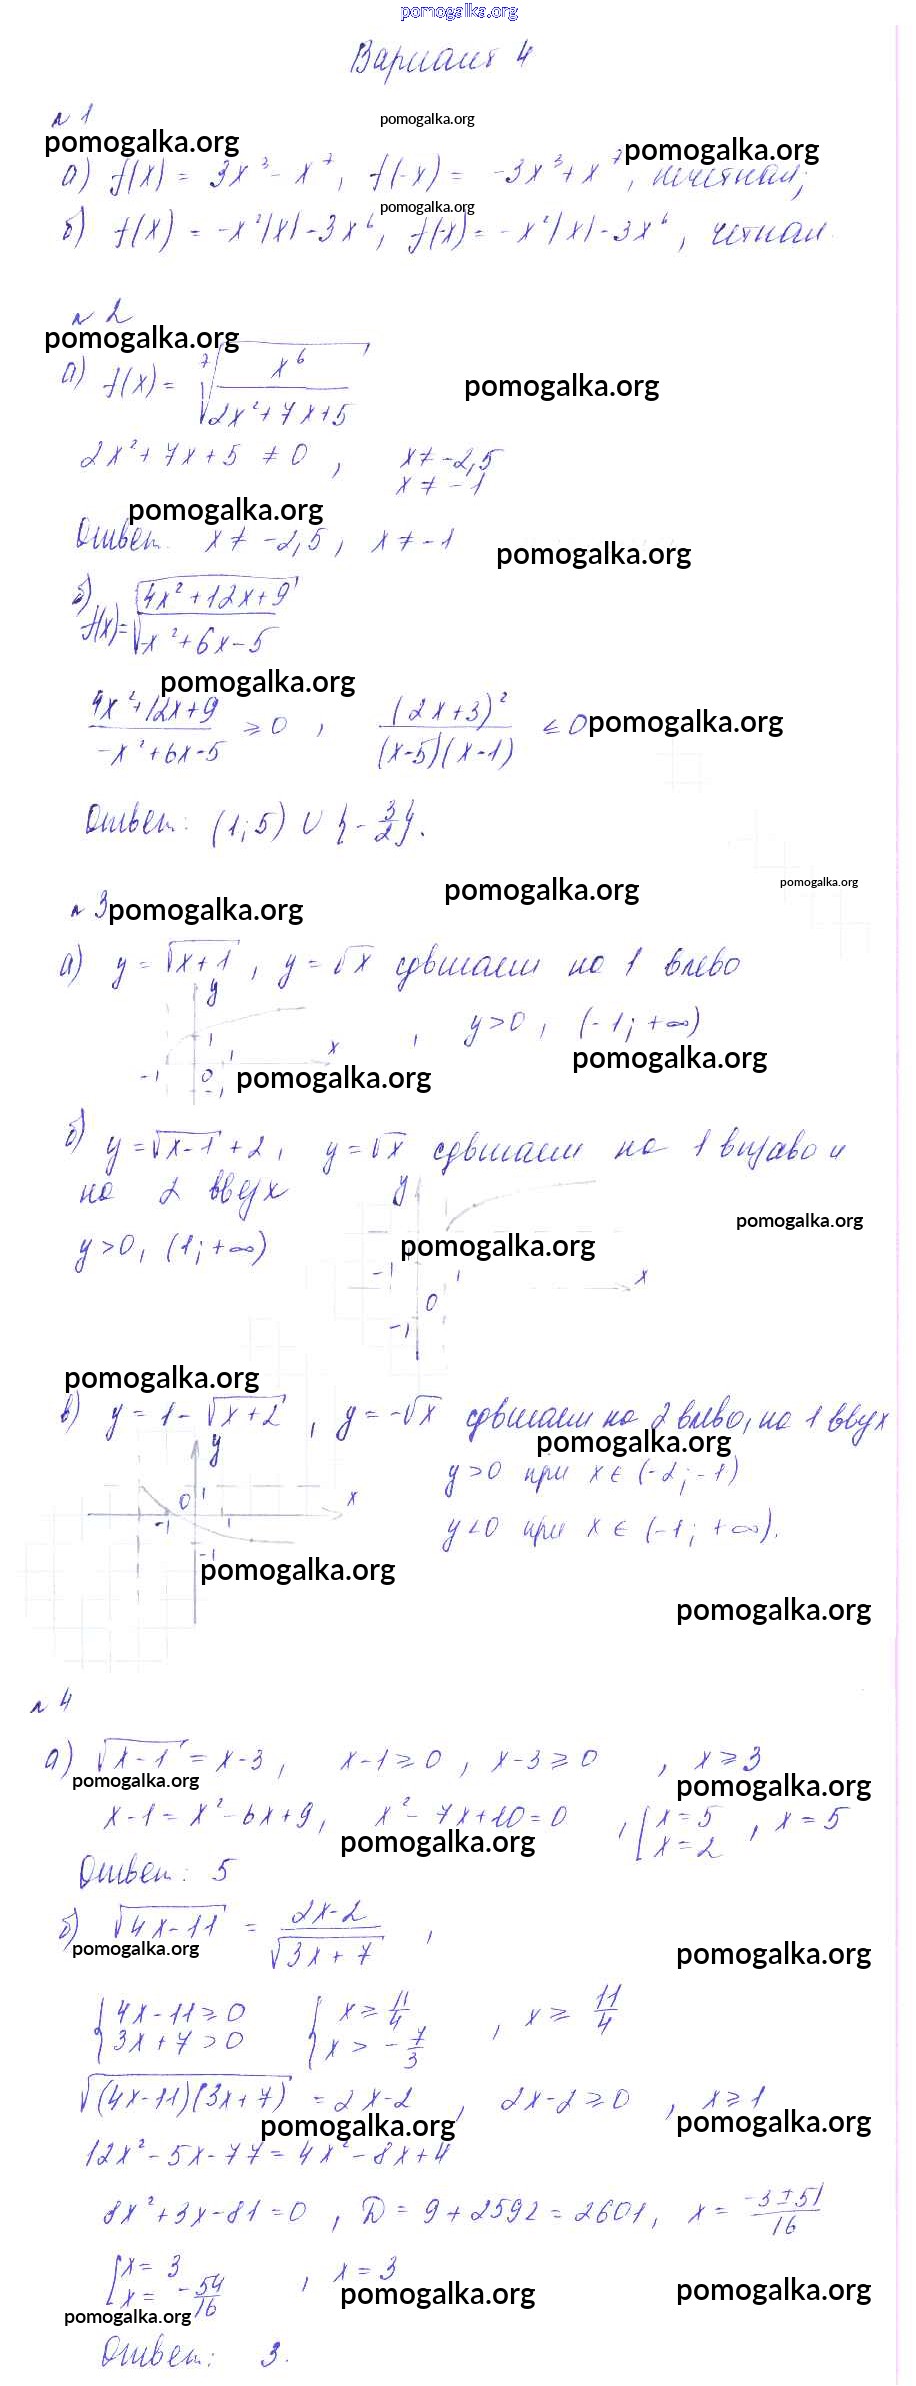 pomogalka.org
Вариант 4
№ 1
pomogalka.org pomogalka.org pomogalka.org
а) f(x) = 3x³ - x⁷, f(-x) = -3x³ + x⁷, нечетная;
pomogalka.org
б) f(x) = -x²|x| - 3x⁶, f(-x) = -x²|x| - 3x⁶, четная.
№ 2
pomogalka.org
а) f(x) = ⁷√(x⁶/(2x²+7x+5))
pomogalka.org
2x² + 7x + 5 ≠ 0, x ≠ -2,5
x ≠ -1
pomogalka.org
Ответ. x ≠ -2,5, x ≠ -1
pomogalka.org
б) f(x) = √((4x²+12x+9)/(-x²+6x-5))
pomogalka.org
(4x²+12x+9)/(-x²+6x-5) ≥ 0, (2x+3)²/((x-5)(x-1)) ≤ 0
pomogalka.org
Ответ: (1; 5) ∪ {-3/2}.
pomogalka.org
pomogalka.org
№ 3
pomogalka.org
а) y = √(x+1), y = √x сдвигаем на 1 влево
y
y > 0, (-1; +∞)
1 1 x
-1 0 -1
pomogalka.org
pomogalka.org
б) y = √(x-1) + 2, y = √x сдвигаем на 1 вправо и
на 2 вверх
y
pomogalka.org
y > 0, (1; +∞)
pomogalka.org
-1 1 x
0
-1
pomogalka.org
в) y = 1 - √(x+2), y = -√x сдвигаем на 2 влево, на 1 вверх
pomogalka.org
y
y > 0 при x ∈ (-2; -1)
0 1 x
-1 1
y < 0 при x ∈ (-1; +∞).
-1
pomogalka.org
pomogalka.org
№ 4
а) √(x-1) = x-3, x-1 ≥ 0, x-3 ≥ 0, x ≥ 3
pomogalka.org pomogalka.org
x-1 = x² - 6x + 9, x² - 7x + 10 = 0, [x = 5, x = 5
x = 2
pomogalka.org
Ответ: 5
б) √(4x-11) = (2x-2)/√(3x+7),
pomogalka.org pomogalka.org
{4x-11 ≥ 0 {x ≥ 11/4, x ≥ 11/4
3x+7 > 0 x > -7/3
√((4x-11)(3x+7)) = 2x-2, 2x-2 ≥ 0, x ≥ 1
pomogalka.org pomogalka.org
12x² - 5x - 77 = 4x² - 8x + 4
8x² + 3x - 81 = 0, D = 9 + 2592 = 2601, x = (-3 ± 51)/16
[x = 3, x = 3
x = -54/16
pomogalka.org pomogalka.org
pomogalka.org
Ответ: 3.